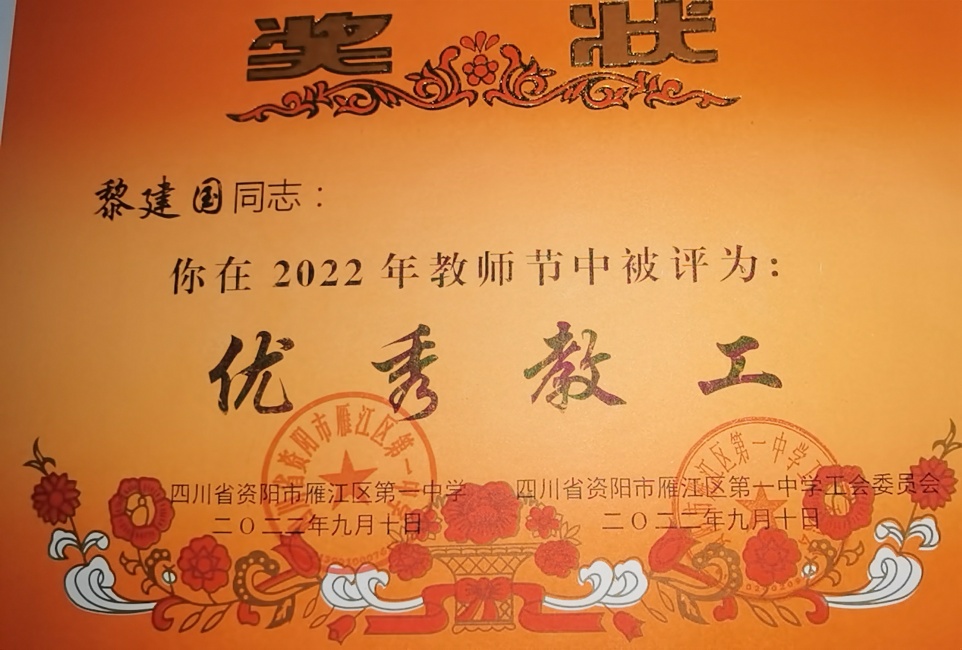 奖状
黎建国同志：
你在 2022 年教师节中被评为：
优秀教工
四川省资阳市雁江区第一中学
二〇二二年九月十日
四川省资阳市雁江区第一中学工会委员会
二〇二二年九月十日